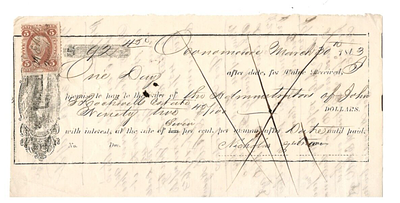 $ 92 45/100 Oconomowoc March 30th 1863
One Day after date, for Value Received, I
Promise to pay to the order of the Administrators of John
S Rockwell Estate
Ninety two 45/100 DOLLARS.
with interest, at the rate of ten per cent, per annum after Date until paid.
Seven
No. Due Nicholas